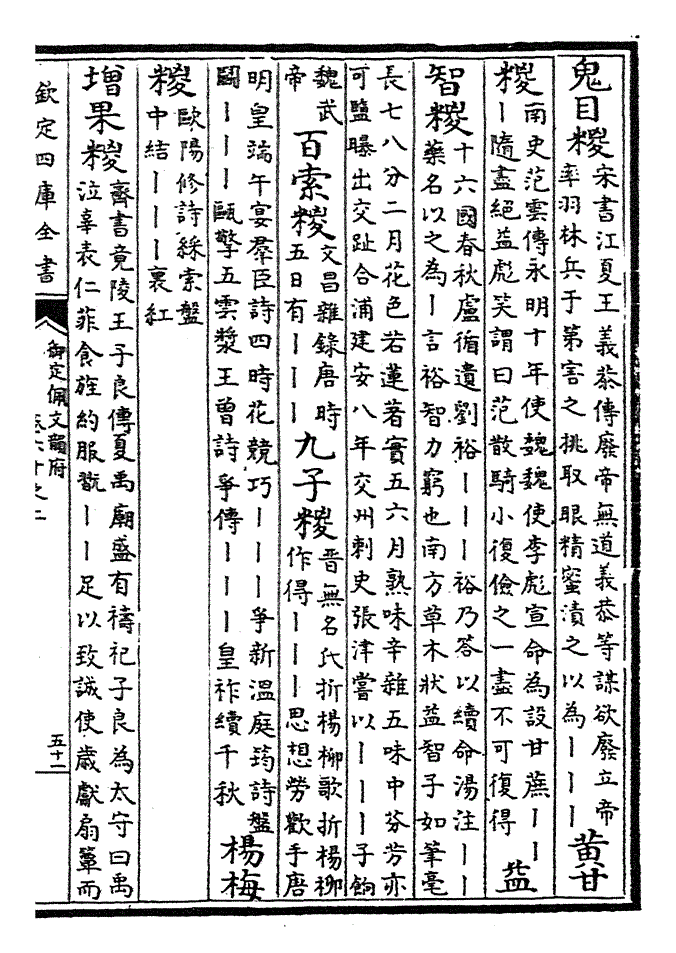 鬼目糉
宋書江夏王義恭傳廢帝無道義恭等謀欲廢立帝
率羽林兵于第害之挑取眼精蜜漬之以為丨丨丨
黃甘
糉
南史范雲傳永明十年使魏魏使李彪宣命為設甘蔗丨丨
丨隨盡絕益彪笑謂曰范散騎小復儉之一盡不可復得
益
智糉
十六國春秋盧循遺劉裕丨丨丨裕乃答以續命湯注丨丨
藥名以之為丨言裕智力窮也南方草木狀益智子如筆毫
長七八分二月花色若蓮著實五六月熟味辛雜五味中芬芳亦
可鹽曝出交趾合浦建安八年交州刺史張津嘗以丨丨丨子餉
魏武
帝
百索糉
文昌雜錄唐時
五日有丨丨丨
九子糉
晉無名氏折楊柳歌折楊柳
作得丨丨丨思想勞歡手唐
明皇端午宴羣臣詩四時花競巧丨丨丨爭新溫庭筠詩盤
鬭丨丨丨甌擎五雲漿王曾詩爭傳丨丨丨皇祚續千秋
楊梅
糉
歐陽修詩綵索盤
中結丨丨丨裹紅
增果糉
齊書竟陵王子良傳夏禹廟盛有禱祀子良為太守曰禹
泣辜表仁菲食旌約服翫丨丨足以致誠使歲獻扇簟而
欽定四庫全書
御定佩文韻府
卷六十之二
五十